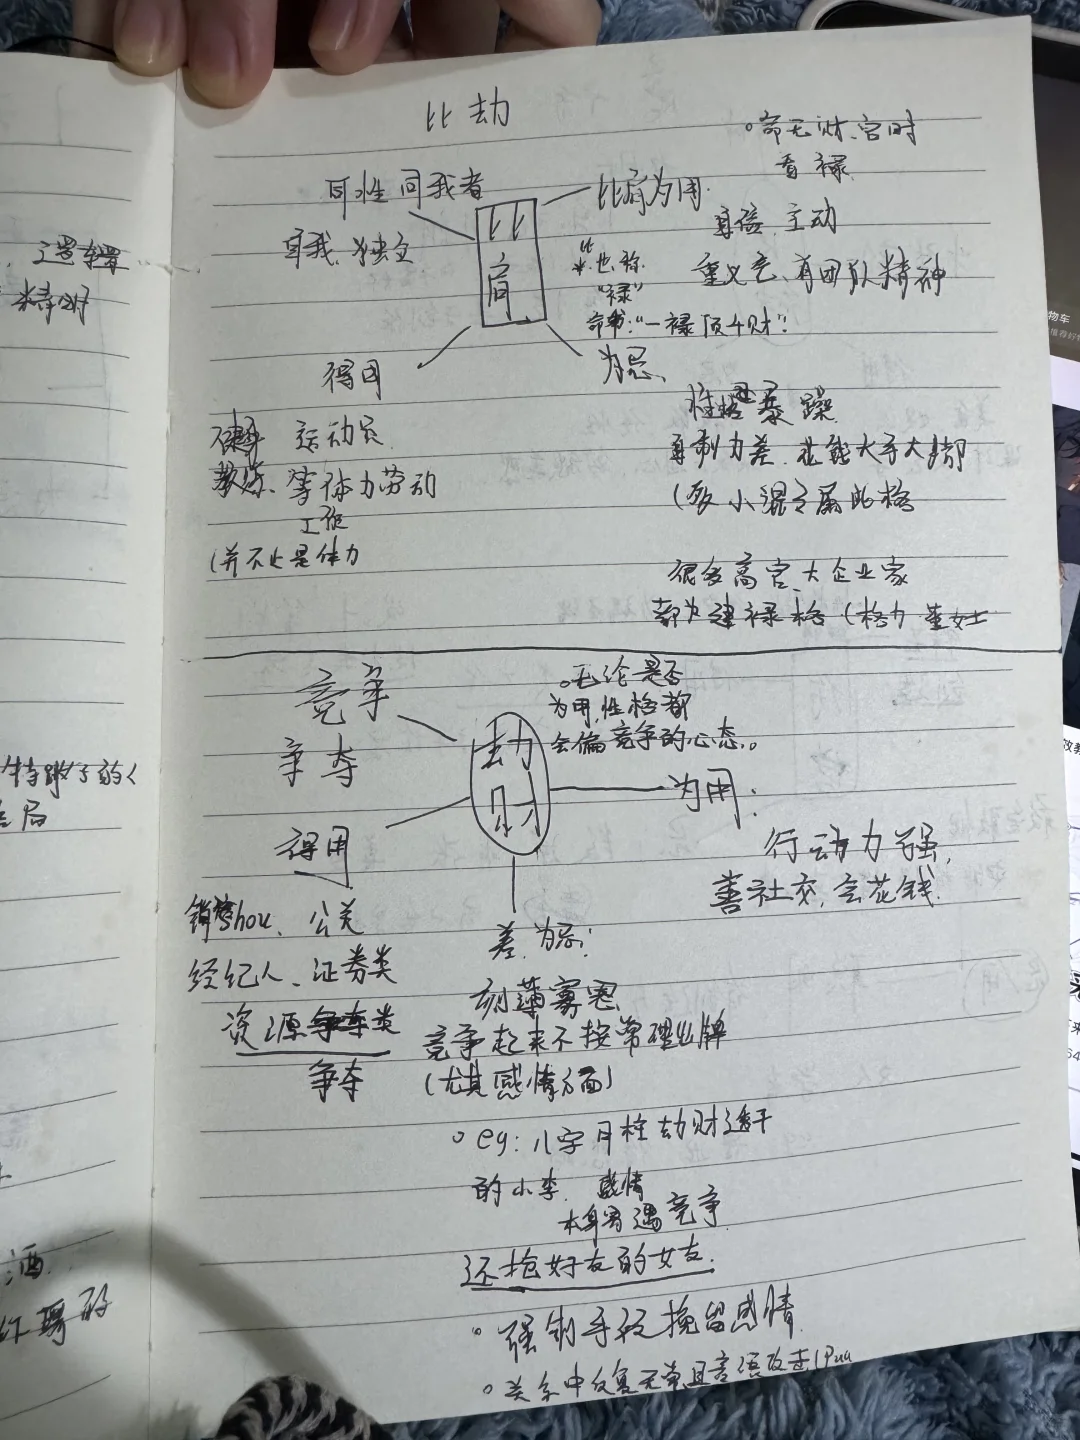 比劫
。命无财、官时
看禄
同性同我者
自我、独立
比肩
比肩为用.
自信、主动
重义气、有团队精神
"比"也称
"禄"
命书:"一禄顶4财":
得用
为忌、
运动员
教练、等体力劳动
工作
(并不止是体力
性格暴躁
自制力差、花钱大手大脚
小混子属此格
很多高官、大企业家
都为建禄格(格力 董女士
竞争
争夺
劫财
。无论是否
为用,性格都
会偏竞争的心态。。
为用:
行动力强,
善社交,会花钱.
得用
销售hou、公关
经纪人、证券类
资源争夺类
争夺
差、为忌:
刻薄寡恩、
竞争起来不按常理出牌
(尤其感情方面)
。eg:八字月柱劫财透干
的小李. 感情
本身容遇竞争
还抢好友的女友.
。强制手段挽留感情
。关系中反复无常且言语攻击(Pua
精明
酒.
物车